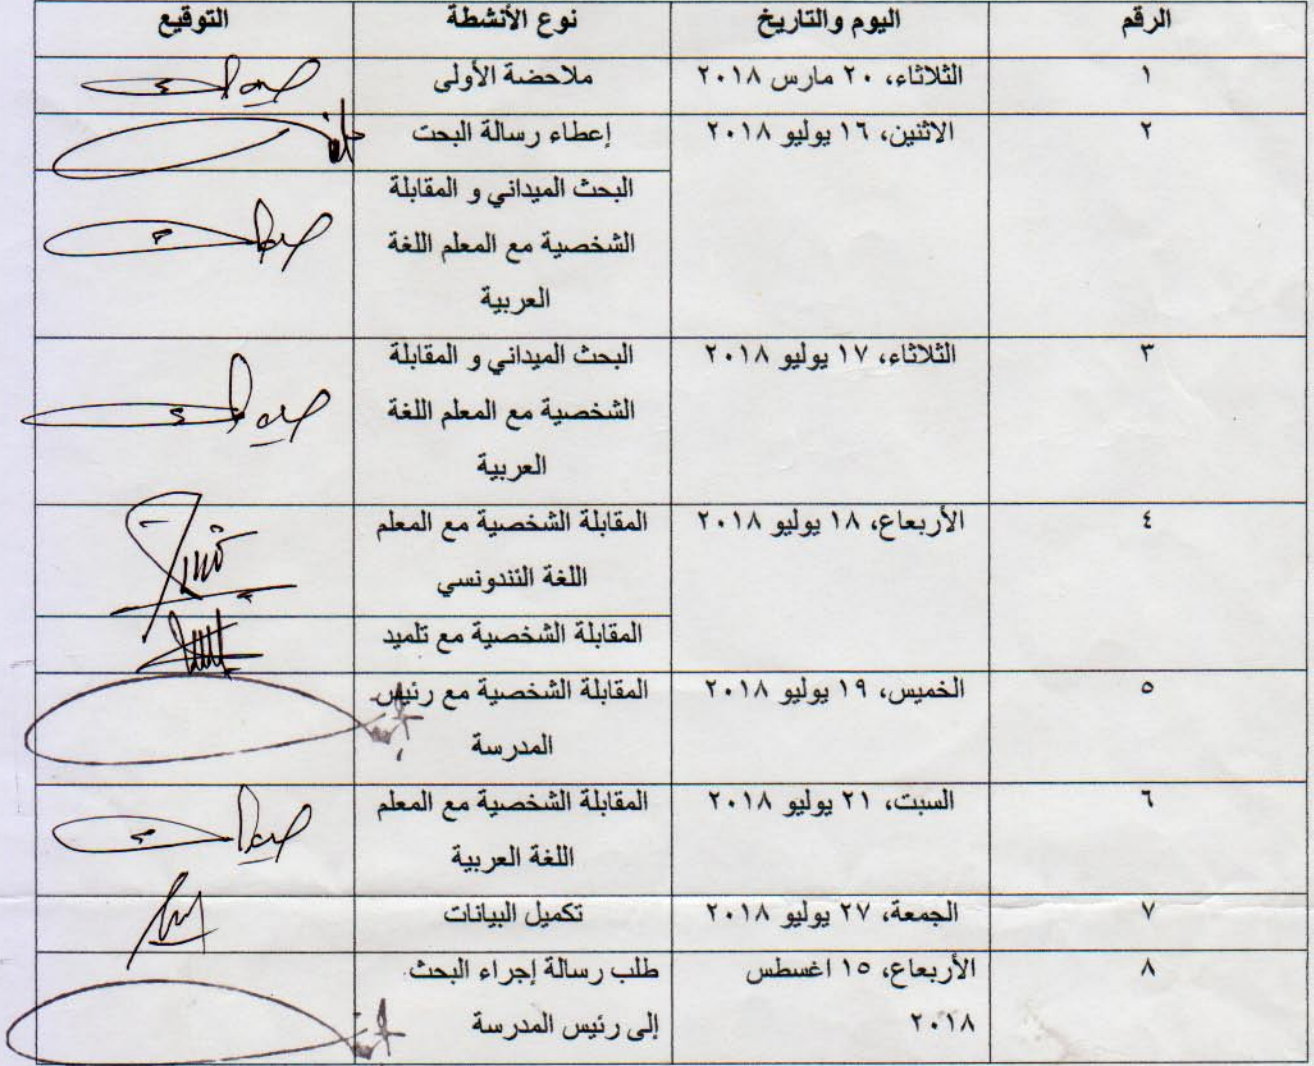 الرقم اليوم والتاريخ نوع الأنشطة التوقيع
١ الثلاثاء، ٢٠ مارس ٢٠١٨ ملاحضة الأولى
٢ الاثنين، ١٦ يوليو ٢٠١٨ إعطاء رسالة البحت
البحث الميداني و المقابلة
الشخصية مع المعلم اللغة
العربية
٣ الثلاثاء، ١٧ يوليو ٢٠١٨ البحث الميداني و المقابلة
الشخصية مع المعلم اللغة
العربية
٤ الأربعاع، ١٨ يوليو ٢٠١٨ المقابلة الشخصية مع المعلم
اللغة النندونسي
المقابلة الشخصية مع تلميد
٥ الخميس، ١٩ يوليو ٢٠١٨ المقابلة الشخصية مع رئيس
المدرسة
٦ السبت، ٢١ يوليو ٢٠١٨ المقابلة الشخصية مع المعلم
اللغة العربية
٧ الجمعة، ٢٧ يوليو ٢٠١٨ تكميل البيانات
٨ الأربعاع، ١٥ اغسطس طلب رسالة إجراء البحث
٢٠١٨ إلى رئيس المدرسة